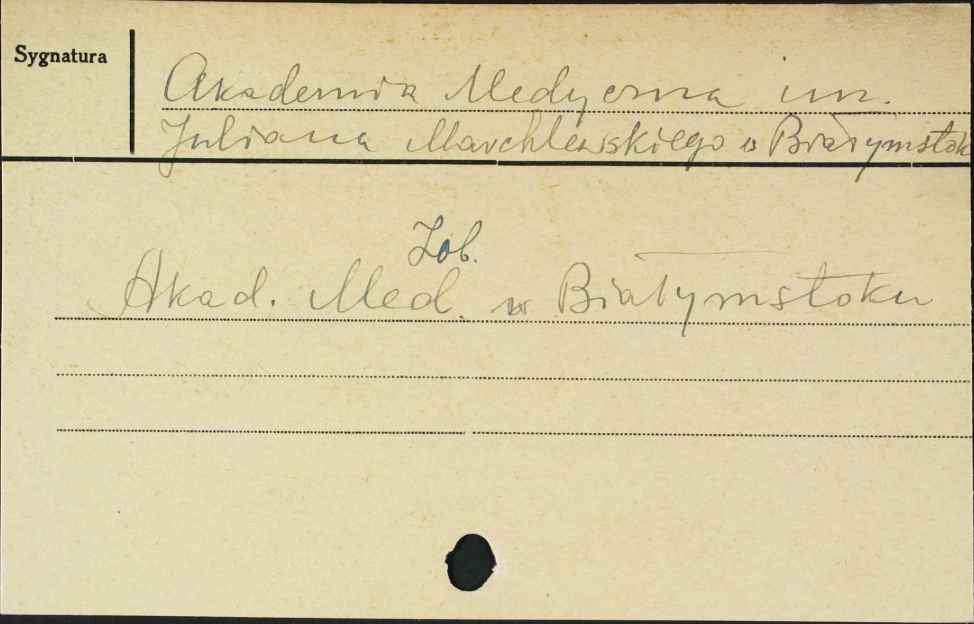 Sygnatura
Akademia Medyczna im.
Juliana Marchlewskiego w Białymstok
Zob.
Akad. Med. w Białymstoku